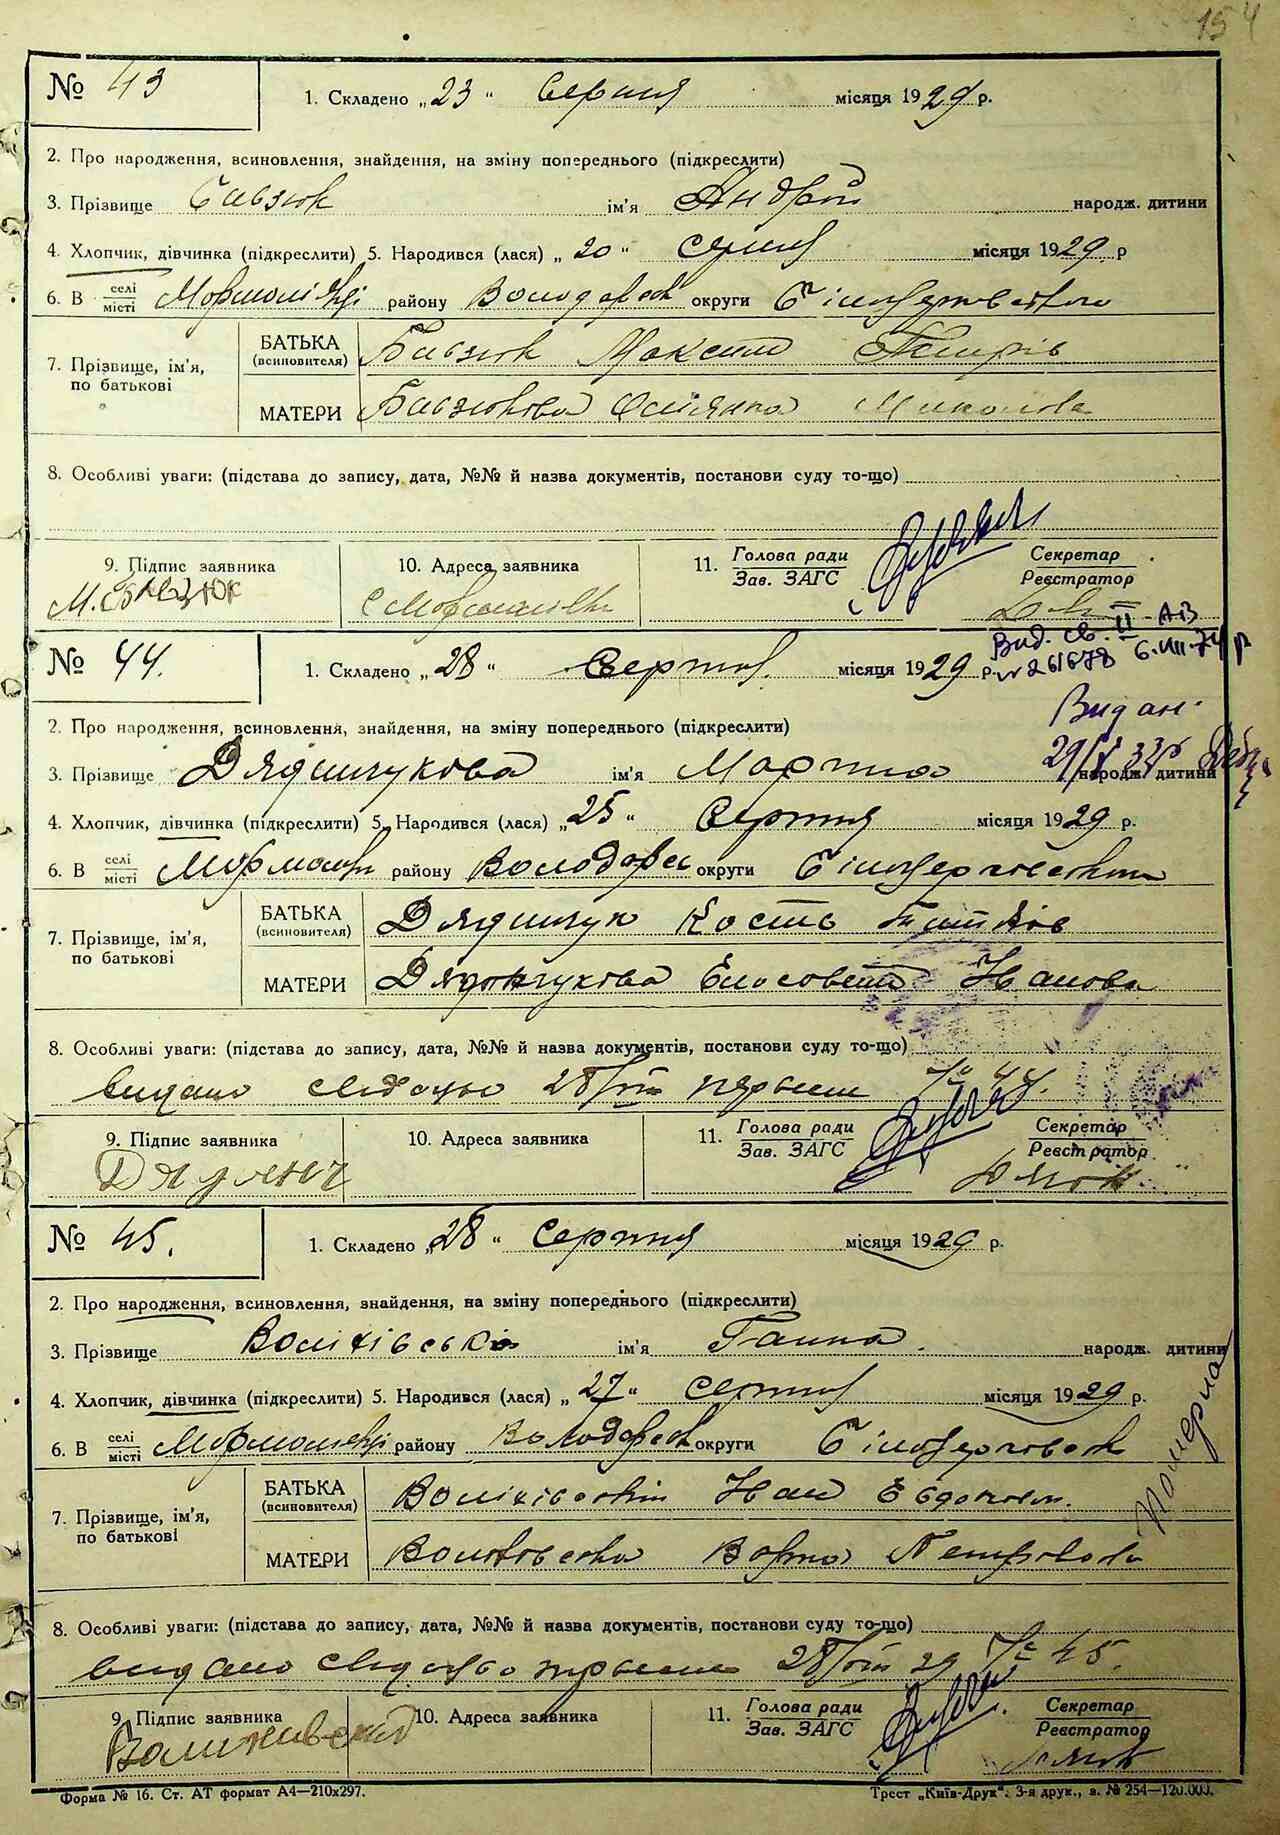 154
№ 43
1. Складено „23“ Серпня місяця 1929 р.
2. Про народження, всиновлення, знайдення, на зміну попереднього (підкреслити)
3. Прізвище ім'я Андрій народж. дитини
4. Хлопчик, дівчинка (підкреслити) 5. Народився (лася) „20“ серпня місяця 1929 р
6. В селі/місті району Володарськ округи Білоцерківської
7. Прізвище, ім'я, по батькові
БАТЬКА (всиновителя) Максим Петрів
МАТЕРИ Миколова
8. Особливі уваги: (підстава до запису, дата, №№ й назва документів, постанови суду то-що)
9. Підпис заявника 10. Адреса заявника 11. Голова ради Секретар
Зав. ЗАГС Реєстратор
Вид. св. II-АБ
№ 261678 6.VIII.74 р
№ 44.
1. Складено „28“ Серпня місяця 1929 р.
Видан
2. Про народження, всиновлення, знайдення, на зміну попереднього (підкреслити)
3. Прізвище Дядинчукова ім'я Марта народж. дитини
4. Хлопчик, дівчинка (підкреслити) 5. Народився (лася) „25“ Серпня місяця 1929 р.
6. В селі/місті району Володарськ округи Білоцерківської
7. Прізвище, ім'я, по батькові
БАТЬКА (всиновителя) Дядинчук Кость
МАТЕРИ Дядинчукова Елисовета Иванова
8. Особливі уваги: (підстава до запису, дата, №№ й назва документів, постанови суду то-що)
видано свідоцтво 28/VIII первинне № 44.
9. Підпис заявника 10. Адреса заявника 11. Голова ради Секретар
Зав. ЗАГС Реєстратор
№ 45.
1. Складено „28“ Серпня місяця 1929 р.
2. Про народження, всиновлення, знайдення, на зміну попереднього (підкреслити)
3. Прізвище Воліківська ім'я Ганна народж. дитини
4. Хлопчик, дівчинка (підкреслити) 5. Народився (лася) „27“ серпня місяця 1929 р.
6. В селі/місті району Володарськ округи Білоцерківськ
Померла
7. Прізвище, ім'я, по батькові
БАТЬКА (всиновителя) Воліківський Иван Евдоким.
МАТЕРИ Воліківська Варка Петровова
8. Особливі уваги: (підстава до запису, дата, №№ й назва документів, постанови суду то-що)
видано свідоцтво первинне 28/VIII 29 № 45.
9. Підпис заявника 10. Адреса заявника 11. Голова ради Секретар
Зав. ЗАГС Реєстратор
Форма № 16. Ст. АТ формат А4—210х297. Трест „Київ-Друк“. 3-я друк., з. № 254—120.000.